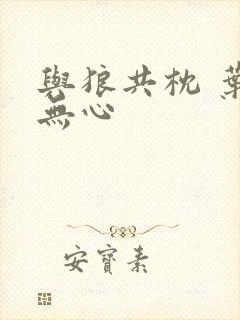 與狼共枕 葉
無心
安寶素